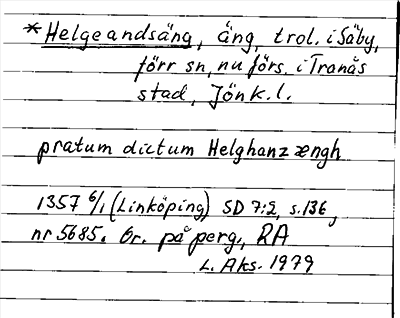 *Helgeandsäng, äng, trol. i Säby,
förr sn, nu förs. i Tranås
stad, Jönk. l.
pratum dictum Helghanz ængh
1357 6/1 (Linköping) SD 7:2, s. 136,
nr 5685. Or. på perg., RA
L. Aks. 1979